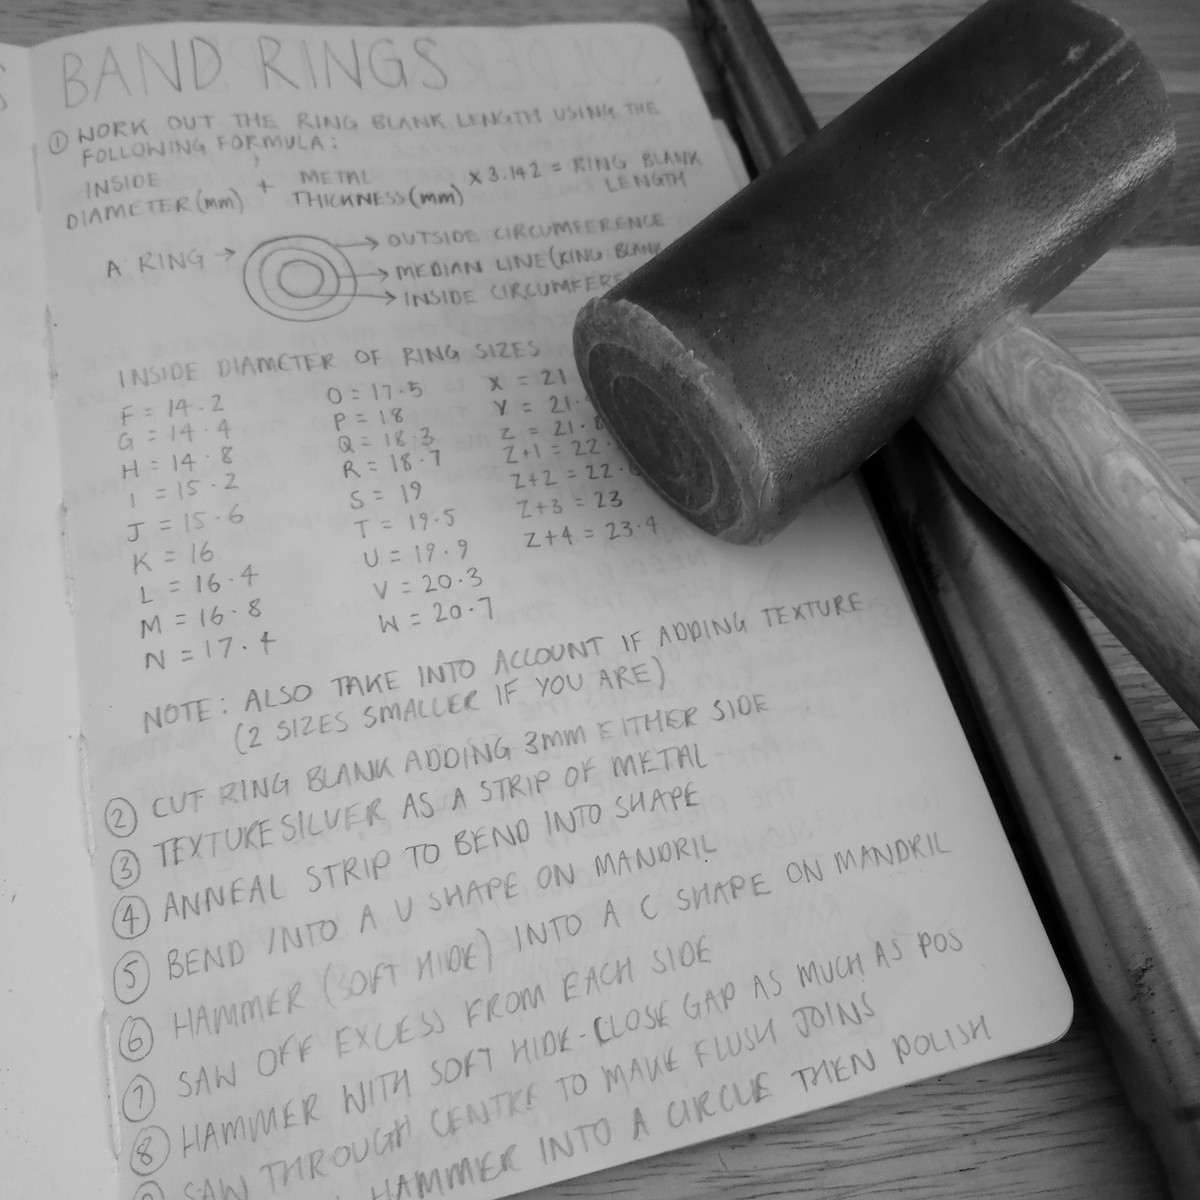 BAND RINGS
① WORK OUT THE RING BLANK LENGTH USING THE
FOLLOWING FORMULA:
INSIDE DIAMETER (mm) + METAL THICKNESS (mm) × 3.142 = RING BLANK LENGTH
A RING →
→ OUTSIDE CIRCUMFERENCE
→ MEDIAN LINE (RING BLANK
→ INSIDE
INSIDE DIAMETER OF RING SIZES
F = 14.2
G = 14.4
H = 14.8
I = 15.2
J = 15.6
K = 16
L = 16.4
M = 16.8
N = 17.4
O = 17.5
P = 18
Q = 18.3
R = 18.7
S = 19
T = 19.5
U = 19.9
V = 20.3
W = 20.7
X = 21
Y = 21.
Z = 21.
Z+1 = 22
Z+2 = 22.
Z+3 = 23
Z+4 = 23.4
NOTE: ALSO TAKE INTO ACCOUNT IF ADDING TEXTURE
(2 SIZES SMALLER IF YOU ARE)
② CUT RING BLANK ADDING 3mm EITHER SIDE
③ TEXTURE SILVER AS A STRIP OF METAL
④ ANNEAL STRIP TO BEND INTO SHAPE
⑤ BEND INTO A U SHAPE ON MANDRIL
⑥ HAMMER (SOFT HIDE) INTO A C SHAPE ON MANDRIL
⑦ SAW OFF EXCESS FROM EACH SIDE
⑧ HAMMER WITH SOFT HIDE - CLOSE GAP AS MUCH AS POS
SAW THROUGH CENTRE TO MAKE FLUSH JOINS
HAMMER INTO A CIRCLE THEN POLISH